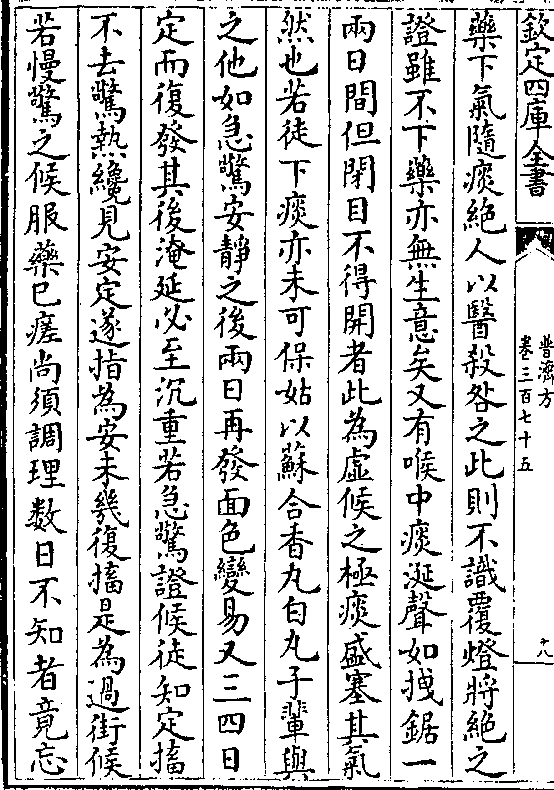 欽定四庫全書
普濟方
卷三百七十五
十八
藥下氣隨痰絶人以醫殺咎之此則不識覆燈將絶之
證雖不下藥亦無生意矣又有喉中痰涎聲如拽鋸一
兩日間但閉目不得開者此為虚候之極痰盛塞其氣
然也若徒下痰亦未可保姑以蘇合香丸白丸子輩與
之他如急驚安靜之後兩日再發面色變易又三四日
定而復發其後淹延必至沉重若急驚證候徒知定搐
不去驚熱纔見安定遂指為安未幾復搐是為過街候
若慢驚之候服藥已瘥尚須調理数日不知者竟忘